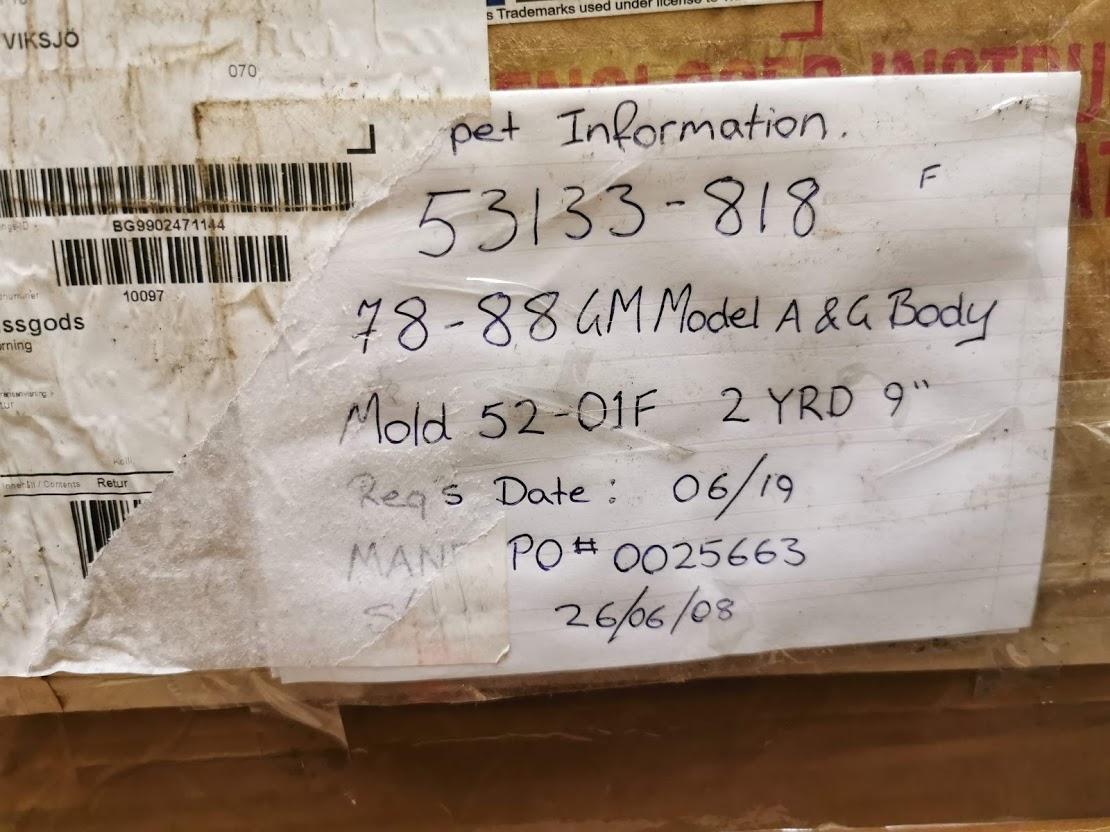 s Trademarks used under license to
VIKSJÖ
070
ENCLOSED INSTRU
BG9902471144
10097
ssgods
rning
Kolli
Innehåll / Contents Retur
pet Information.
53133-818 F
78-88 GM Model A & G Body
Mold 52-01F 2 YRD 9"
Req's Date: 06/19
MANF PO# 0025663
26/06/08